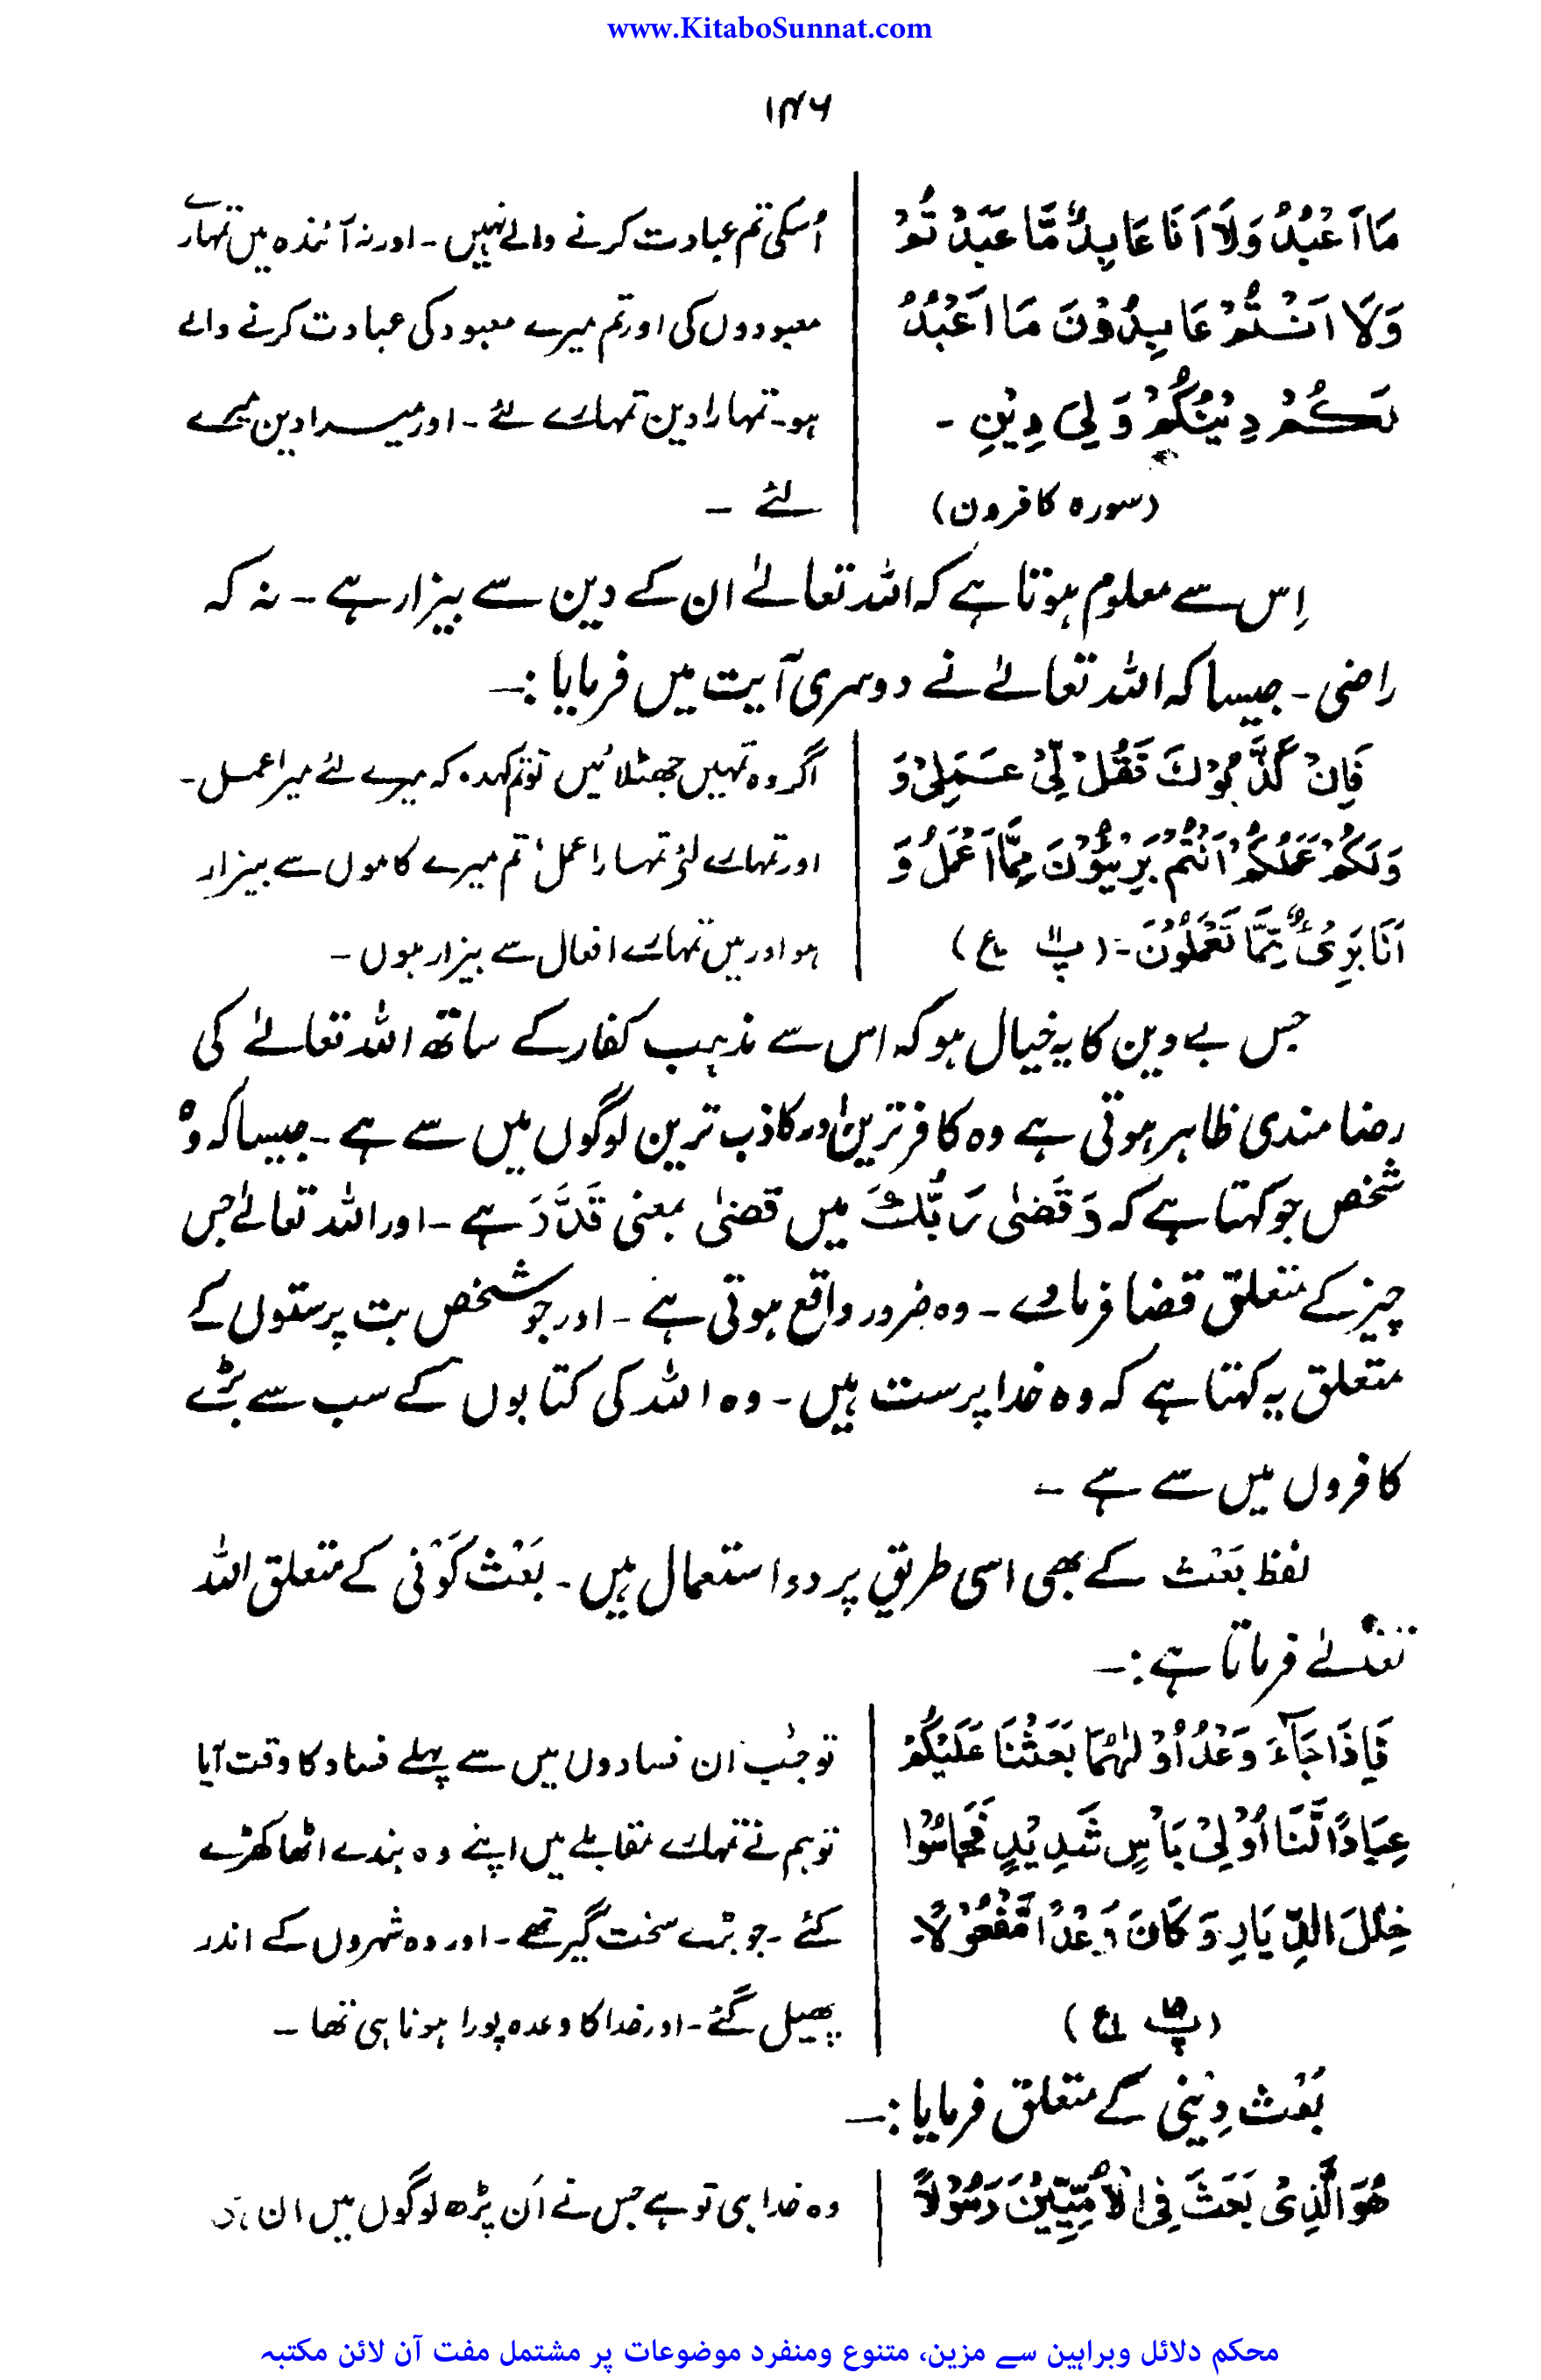 www.KitaboSunnat.com
۱۴۶
مَا اَعْبُدُ وَلَا اَنَا عَابِدٌ مَّا عَبَدْتُّمْ
وَلَا اَنْتُمْ عَابِدُوْنَ مَا اَعْبُدُ
لَكُمْ دِيْنُكُمْ وَلِىَ دِيْنِ ۔
(سورہ کافرون)
اُسکی تم عبادت کرنے والے نہیں ۔ اور نہ آئندہ میں تمہارے
معبودوں کی اور تم میرے معبود کی عبادت کرنے والے
ہو۔ تمہارا دین تمہارے لئے ۔ اور میرا دین میرے
لئے ۔
اِس سے معلوم ہوتا ہے کہ اللہ تعالےٰ ان کے دین سے بیزار ہے ۔ نہ کہ
راضی ۔ جیسا کہ اللہ تعالےٰ نے دوسری آیت میں فرمایا :۔
فَاِنْ كَذَّبُوْكَ فَقُلْ لِّىْ عَمَلِىْ وَ
وَلَكُمْ عَمَلُكُمْ اَنْتُمْ بَرِيْئُوْنَ مِمَّا اَعْمَلُ وَ
اَنَا بَرِىْءٌ مِّمَّا تَعْمَلُوْنَ ۔ (پ۱۱ ع)
اگر وہ تمہیں جھٹلائیں تو تم کہدو کہ میرے لئے میرا عمل ۔
اور تمہارے لئے تمہارا عمل، تم میرے کاموں سے بیزار
ہو اور میں تمہارے افعال سے بیزار ہوں ۔
جس بے دین کا یہ خیال ہو کہ اس سے مذہب کفار کے ساتھ اللہ تعالےٰ کی
رضا مندی ظاہر ہوتی ہے وہ کافر ترین اور کاذب ترین لوگوں میں سے ہے ۔ جیسا کہ وہ
شخص جو کہتا ہے کہ وَقَضٰى رَبُّكَ میں قضیٰ بمعنی قَدَّرَ ہے ۔ اور اللہ تعالےٰ جس
چیز کے متعلق قضا فرماوے ۔ وہ ضرور واقع ہوتی ہے ۔ اور جو شخص بت پرستوں کے
متعلق یہ کہتا ہے کہ وہ خدا پرست ہیں ۔ وہ اللہ کی کتابوں کے سب سے بڑے
کافروں میں سے ہے ۔
لفظ بَعْث کے بھی اسی طریق پر دو استعمال ہیں ۔ بَعْث کَوْنی کے متعلق اللہ
تعالےٰ فرماتا ہے :۔
فَاِذَا جَآءَ وَعْدُ اُوْلٰهُمَا بَعَثْنَا عَلَيْكُمْ
عِبَادًا لَّنَا اُوْلِىْ بَاْسٍ شَدِيْدٍ فَجَاسُوْا
خِلٰلَ الدِّيَارِ وَكَانَ وَعْدًا مَّفْعُوْلًا ۔
(پ۱۵ ع۱)
تو جب ان فسادوں میں سے پہلے فساد کا وقت آیا
تو ہم نے تمہارے مقابلے میں اپنے وہ بندے اٹھا کھڑے
کئے ۔ جو بڑے سخت گیر تھے ۔ اور وہ شہروں کے اندر
پھیل گئے ۔ اور خدا کا وعدہ پورا ہونا ہی تھا ۔
بَعْث دِیْنی کے متعلق فرمایا :۔
هُوَ الَّذِىْ بَعَثَ فِى الْاُمِّيّٖنَ رَسُوْلًا
وہ خدا ہی تو ہے جس نے اَن پڑھ لوگوں میں ان
محکم دلائل وبراہین سے مزین، متنوع ومنفرد موضوعات پر مشتمل مفت آن لائن مکتبہ